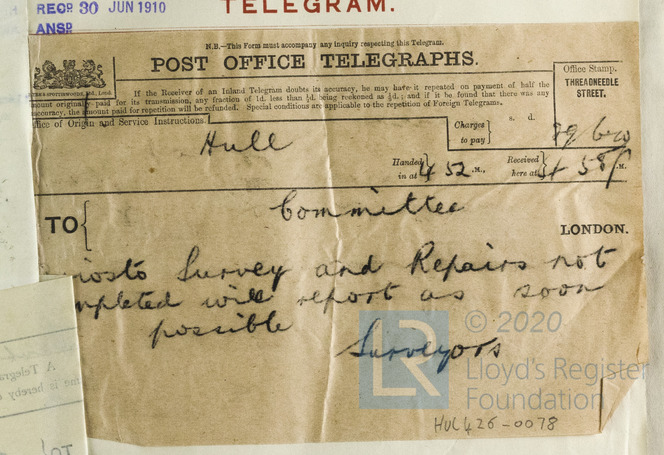 RECD 30 JUN 1910
TELEGRAM.
ANSD
N.B.—This Form must accompany any inquiry respecting this Telegram.
POST OFFICE TELEGRAPHS.
If the Receiver of an Inland Telegram doubts its accuracy, he may have it repeated on payment of half the
amount originally paid for its transmission, any fraction of 1d. less than ½d. being reckoned as ½d.; and if it be found that there was any
inaccuracy, the amount paid for repetition will be refunded. Special conditions are applicable to the repetition of Foreign Telegrams.
Office Stamp.
THREADNEEDLE
STREET.
Office of Origin and Service Instructions.
Charges
to pay
s. d.
Hull
Handed
in at
4 52 .M.,
Received
here at
.M.
TO
Committee
LONDON.
Survey and Repairs not
mpleted will report as soon
possible
Surveyors
© 2020
LR
Lloyd's Register
Foundation
HUL426-0078
A Telegra
me is hereby
TO